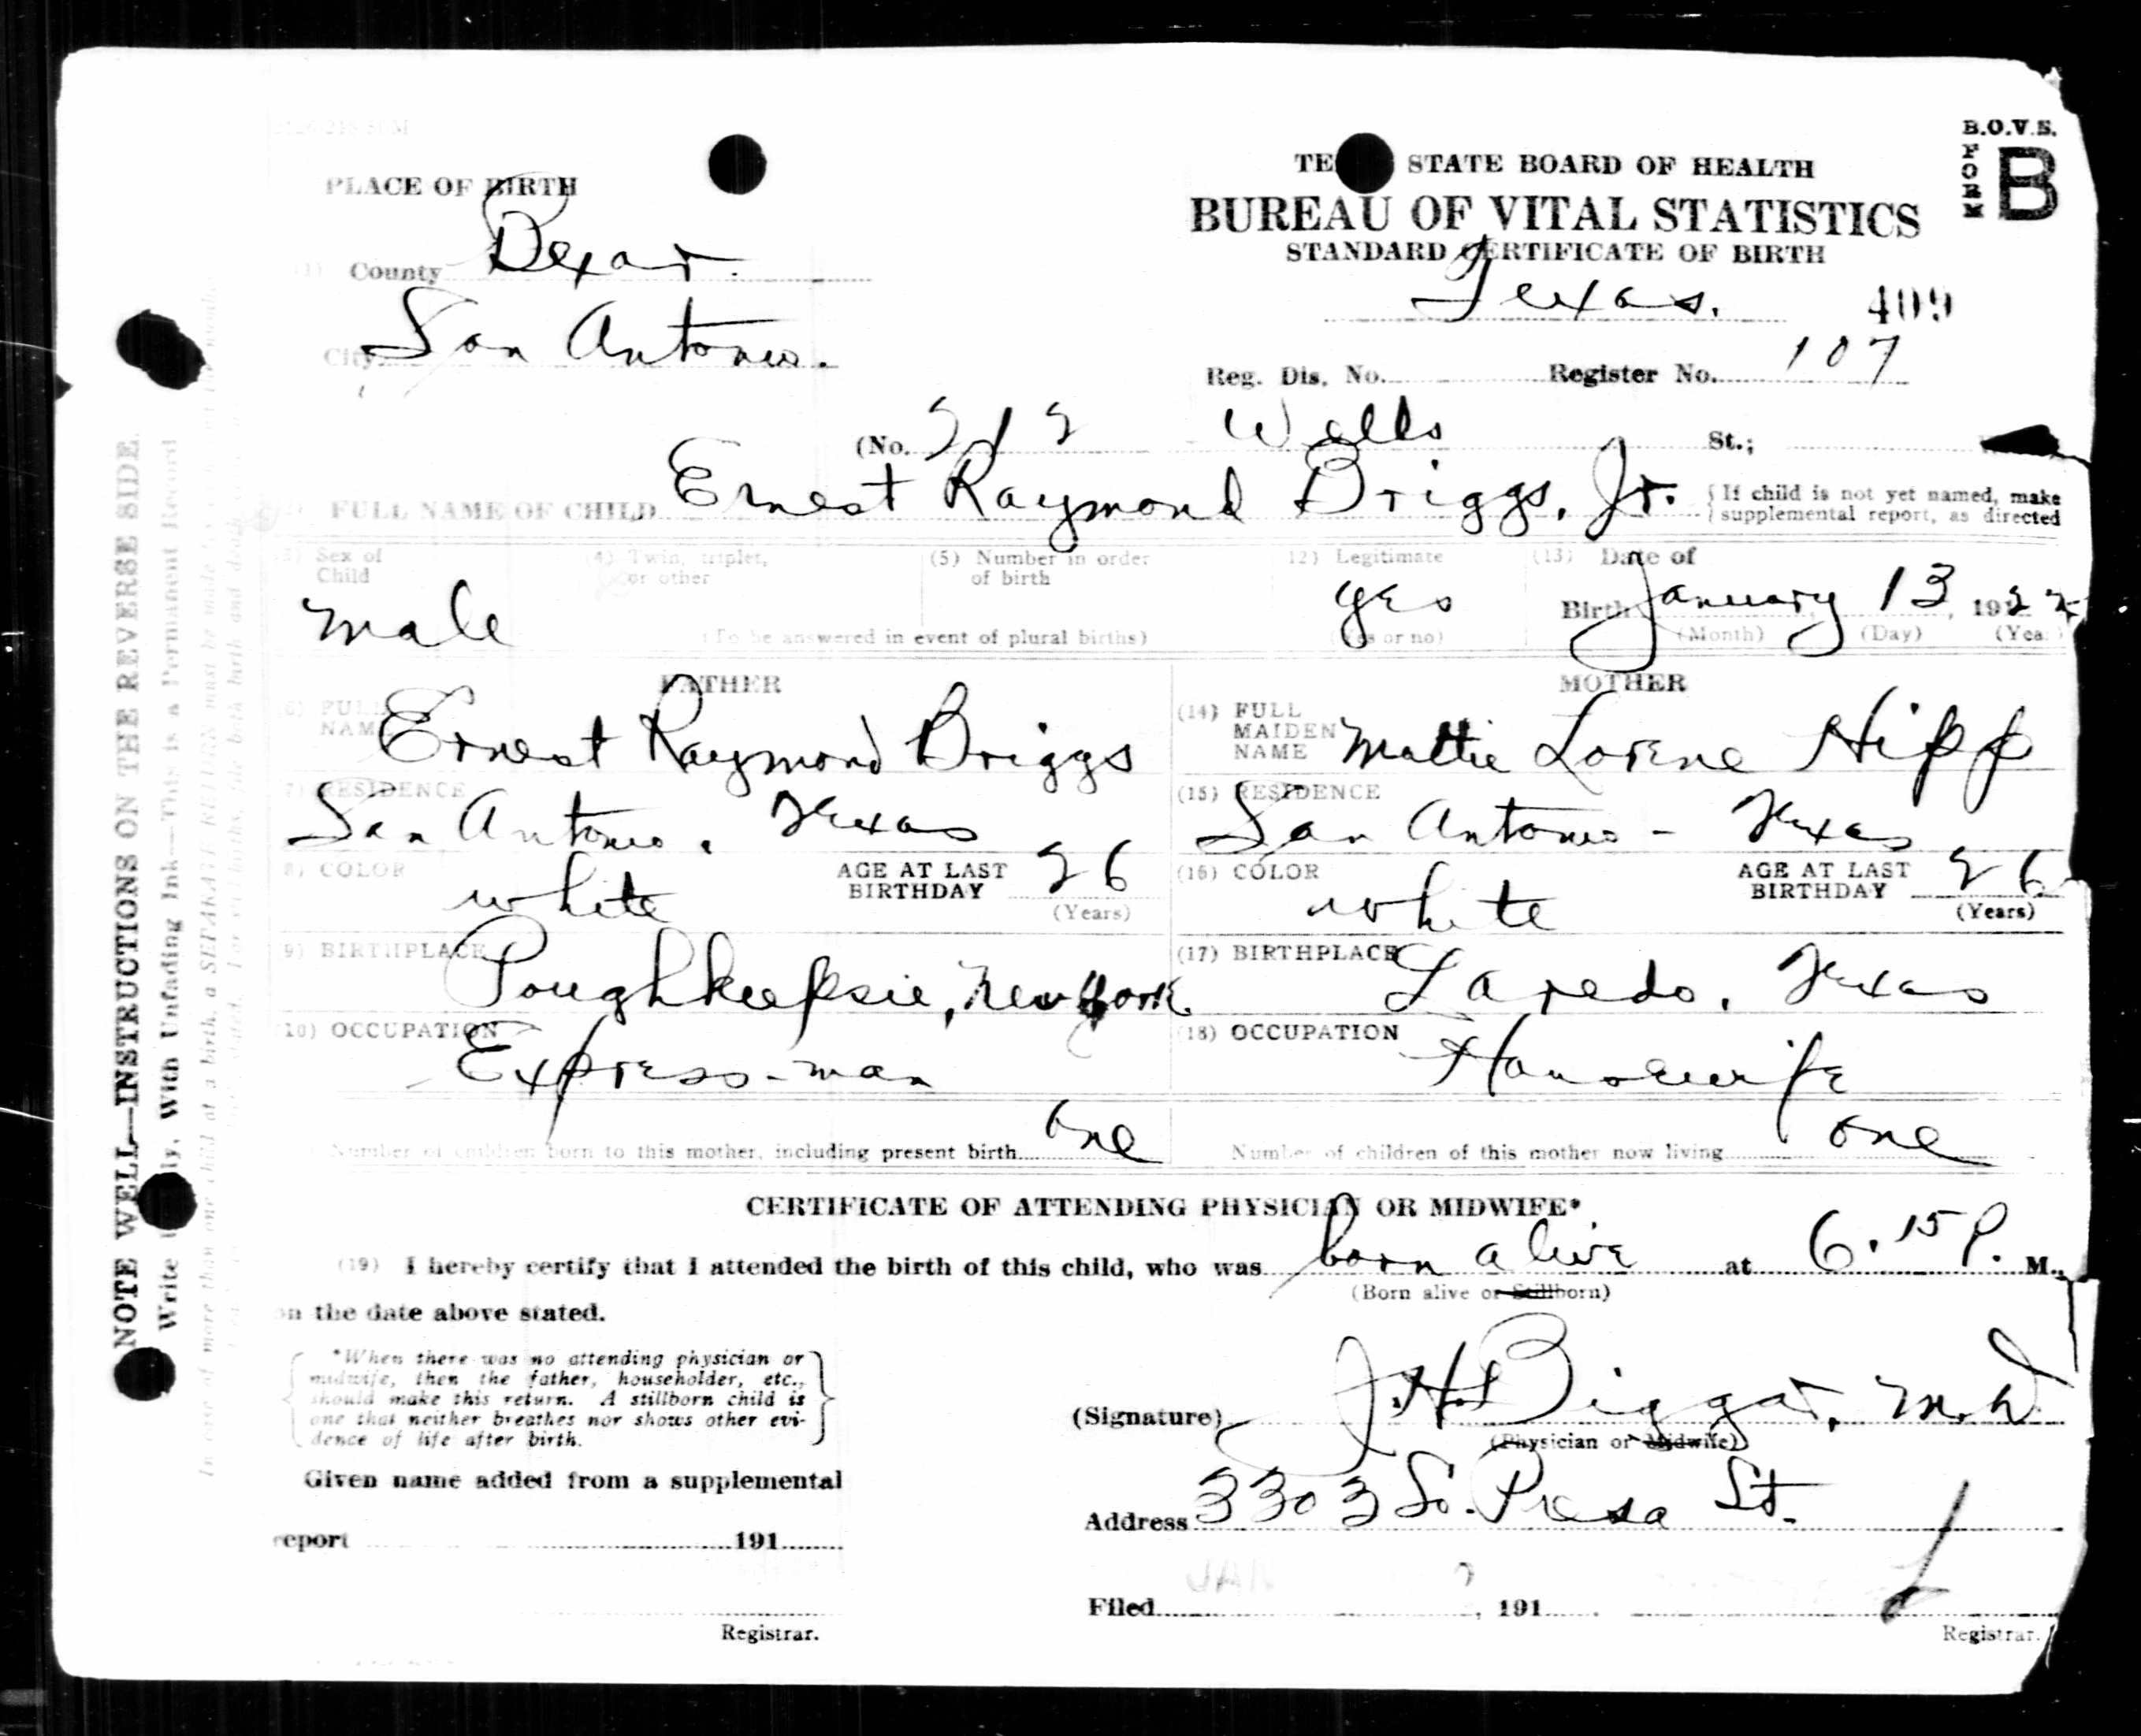 B.O.V.S.
FORM B
PLACE OF BIRTH
STATE BOARD OF HEALTH
BUREAU OF VITAL STATISTICS
STANDARD CERTIFICATE OF BIRTH
(1) County Bexar.
Texas. 409
City San Antonio.
Reg. Dis. No. Register No. 107
(No. 212 Wells St.;
FULL NAME OF CHILD Ernest Raymond Briggs, Jr. {If child is not yet named, make
supplemental report, as directed
(3) Sex of Child male
(4) Twin, triplet, or other
(5) Number in order of birth
(To be answered in event of plural births)
(12) Legitimate yes (Yes or no)
(13) Date of Birth January 13, 1922
(Month) (Day) (Year)
FATHER
(6) FULL NAME Ernest Raymond Briggs
(7) RESIDENCE San Antonio, Texas
(8) COLOR white AGE AT LAST BIRTHDAY 26 (Years)
(9) BIRTHPLACE Poughkeepsie, New York
(10) OCCUPATION Express-man
Number of children born to this mother, including present birth one
MOTHER
(14) FULL MAIDEN NAME Mattie Lorene Hipp
(15) RESIDENCE San Antonio - Texas
(16) COLOR white AGE AT LAST BIRTHDAY 26 (Years)
(17) BIRTHPLACE Laredo, Texas
(18) OCCUPATION Housewife
Number of children of this mother now living one
CERTIFICATE OF ATTENDING PHYSICIAN OR MIDWIFE*
(19) I hereby certify that I attended the birth of this child, who was born alive at 6.15 P. M.,
(Born alive or Stillborn)
on the date above stated.
*When there was no attending physician or
midwife, then the father, householder, etc.,
should make this return. A stillborn child is
one that neither breathes nor shows other evi-
dence of life after birth.
(Signature) J. H. Biggar, M.D.
(Physician or Midwife)
Given name added from a supplemental
report 191
Address 3303 So. Presa St.
Filed JAN , 191
Registrar.
Registrar.
NOTE WELL—INSTRUCTIONS ON THE REVERSE SIDE.
Write ly, With Unfading Ink—This is a Permanent Record
In case of more than one child at a birth, a SEPARATE RETURN must be made